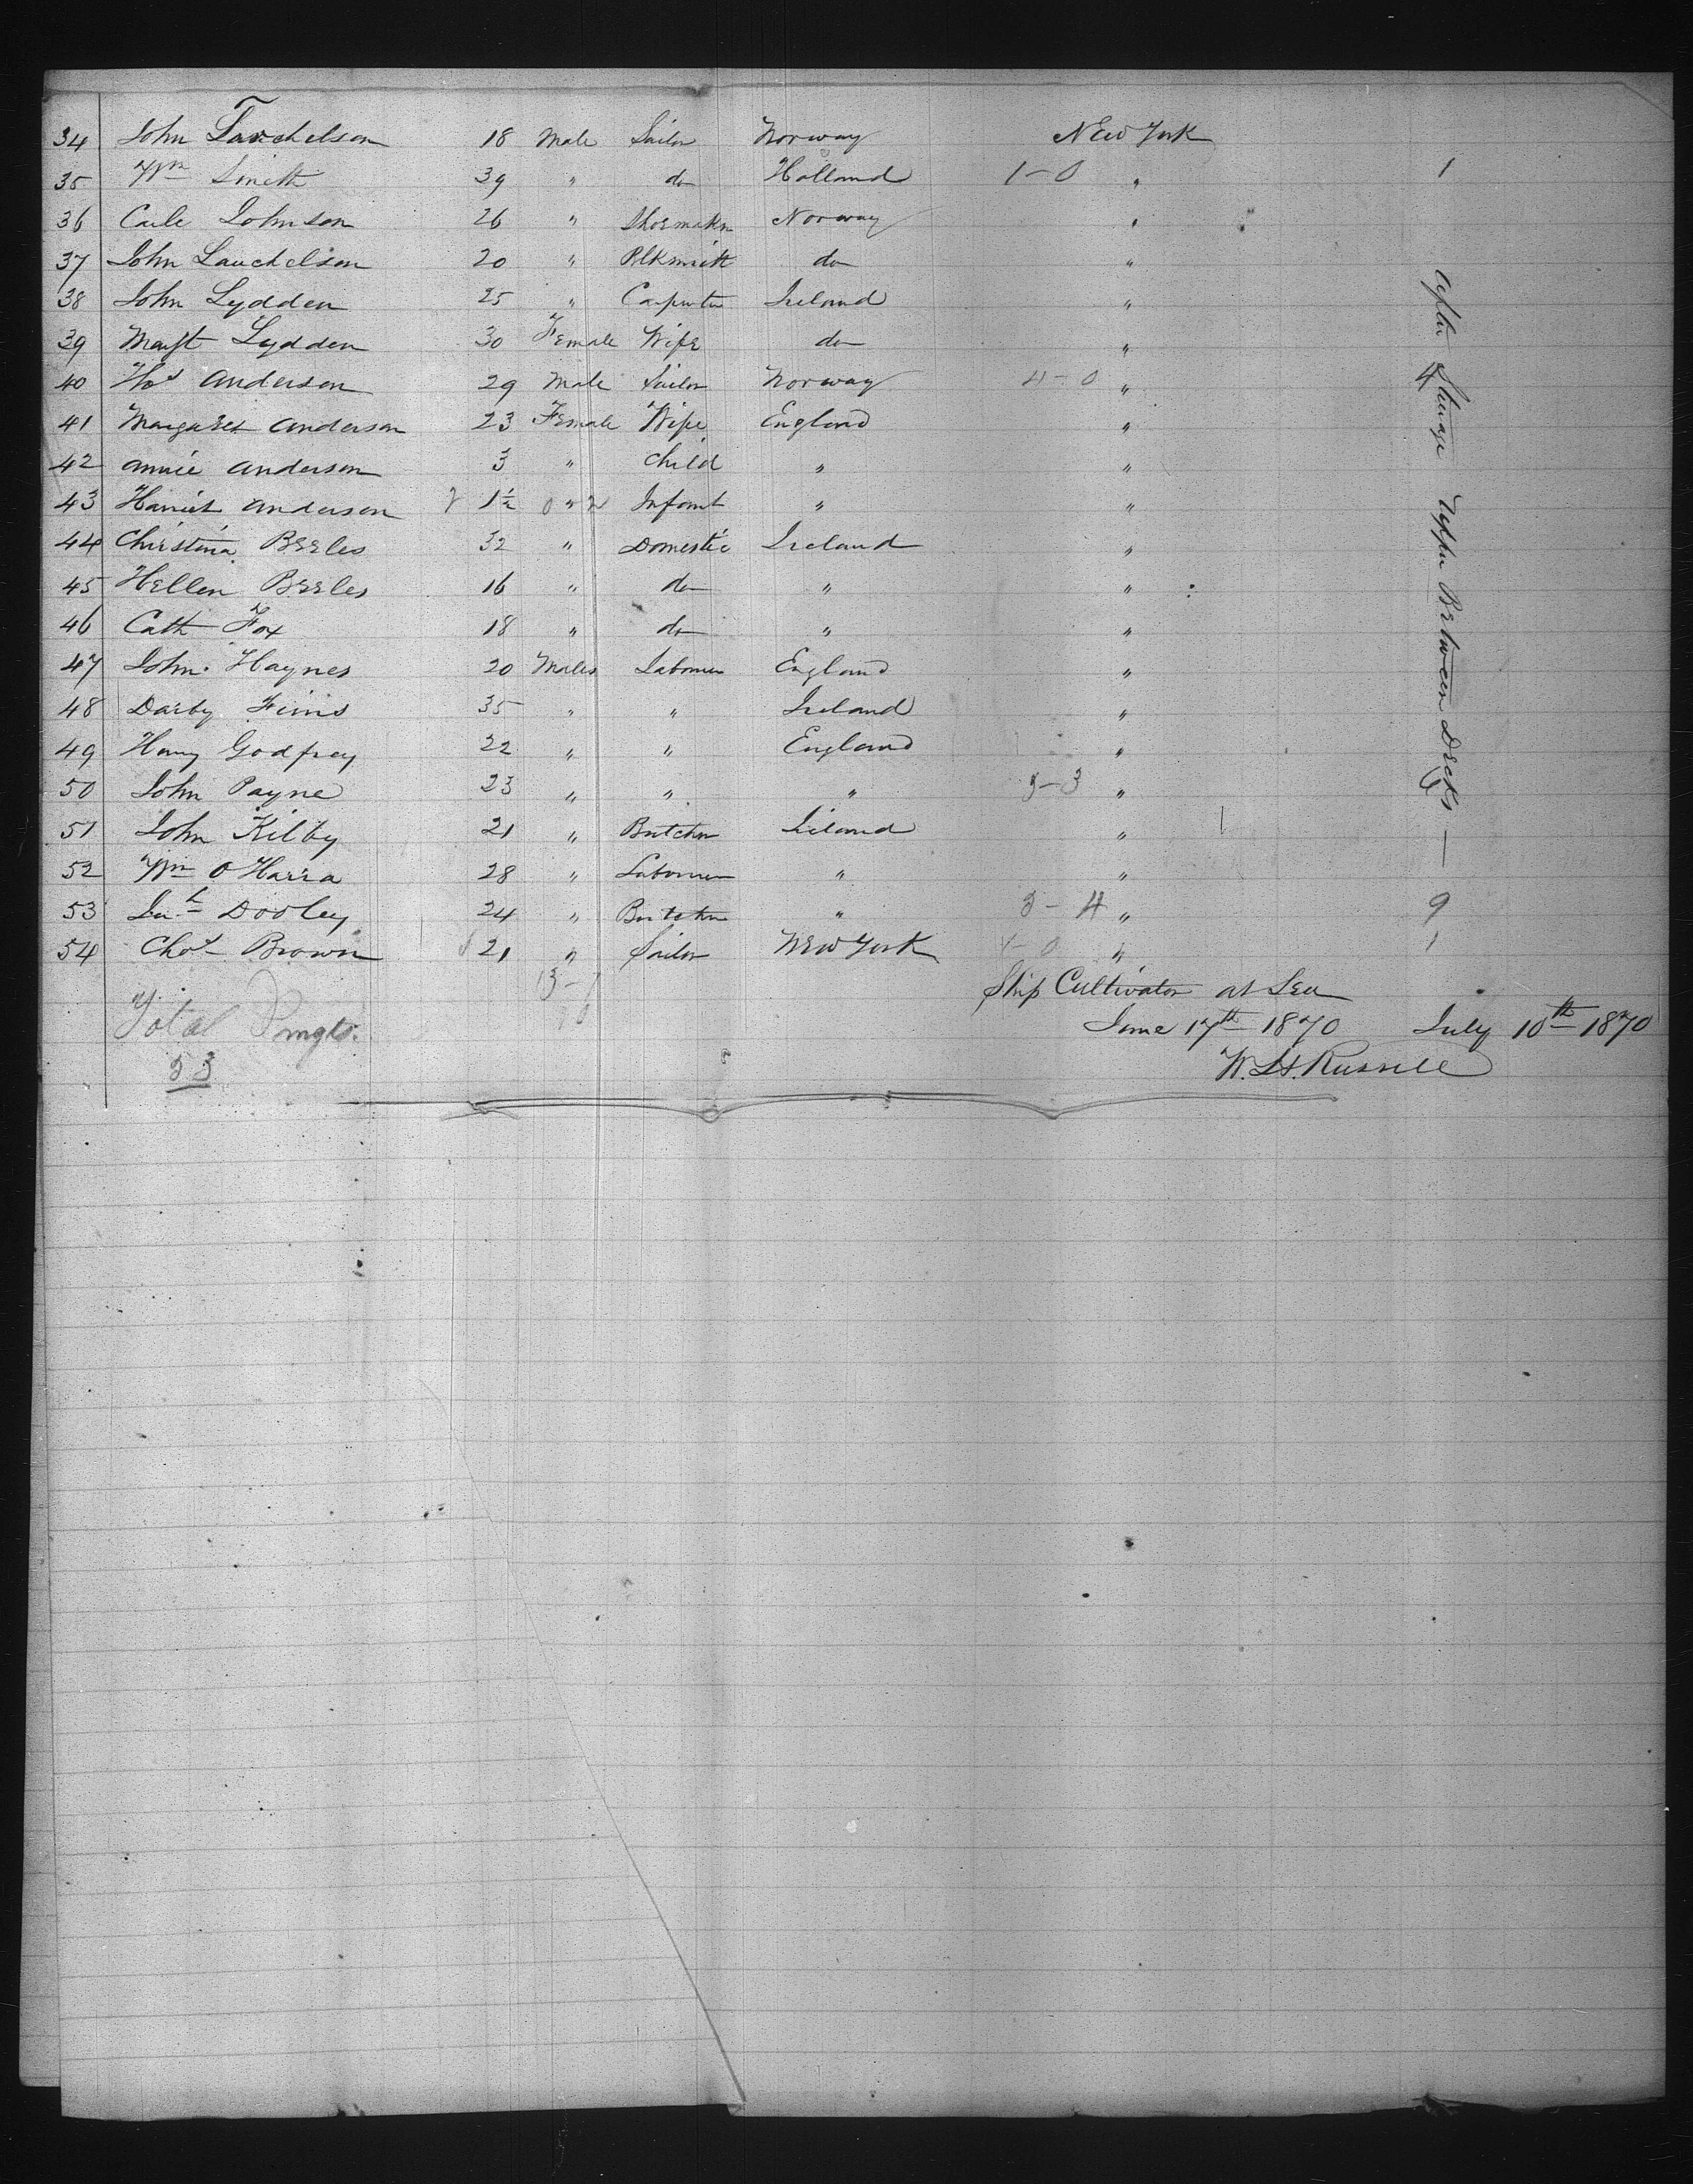 34 John Tarchelson 18 Male Sailor Norway New York
35 Wm Smith 39 " do Holland 1-0 " 1
36 Carle Johnson 26 " Shoemaker Norway "
37 John Lauchelson 20 " Blksmith do "
38 John Lydden 25 " Carpenter Ireland "
39 Margt Lydden 30 Female Wife do "
40 Anderson 29 Male Sailor Norway 4-0 " 4
41 Margaret Anderson 23 Female Wife England "
42 Annie Anderson 3 " Child " "
43 Harriet Anderson 1½ " Infant " "
44 Christina Beeles 32 " Domestic Ireland "
45 Hellen Beeles 16 " do " "
46 Cath Fox 18 " do " "
47 John Haynes 20 Males Labourer England "
48 Darby Finis 35 " " Ireland "
49 Harry Godfrey 22 " " England "
50 John Payne 23 " " " 5-3 "
51 John Kilby 21 " Butcher Ireland "
52 Wm O Harra 28 " Labourer " "
53 Dooley 24 " Butcher " 5-4 " 9
54 Chas Brown 21 " Sailor New York 1-0 " 1
After Steerage Upper Between Decks —
Ship Cultivator at Sea
Total Psngts. June 17th 1870 July 10th 1870
53 W. H. Russell